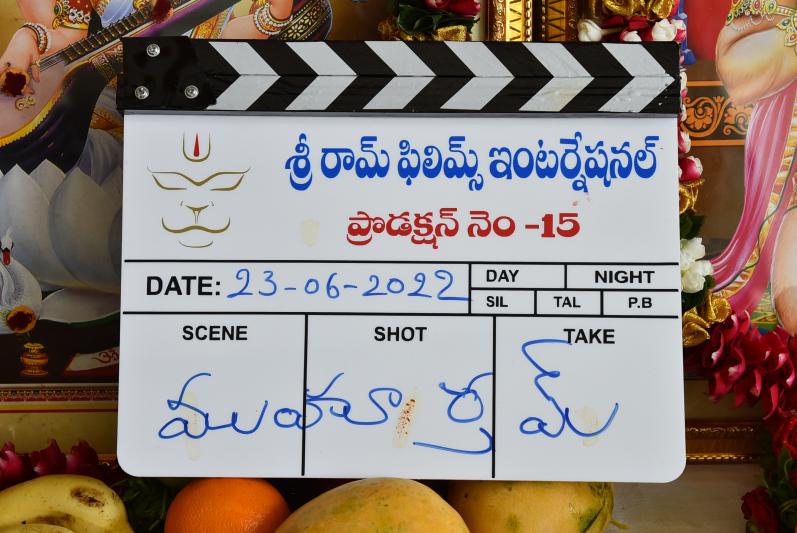 శ్రీ రామ్ ఫిలిమ్స్ ఇంటర్నేషనల్
ప్రొడక్షన్ నెం -15
DATE: 23-06-2022
DAY NIGHT
SIL TAL P.B
SCENE SHOT TAKE
ముహూర్తమ్